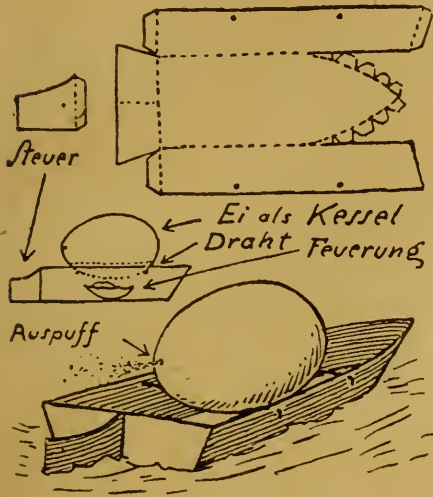 Steuer
Ei als Kessel
Draht Feuerung
Auspuff